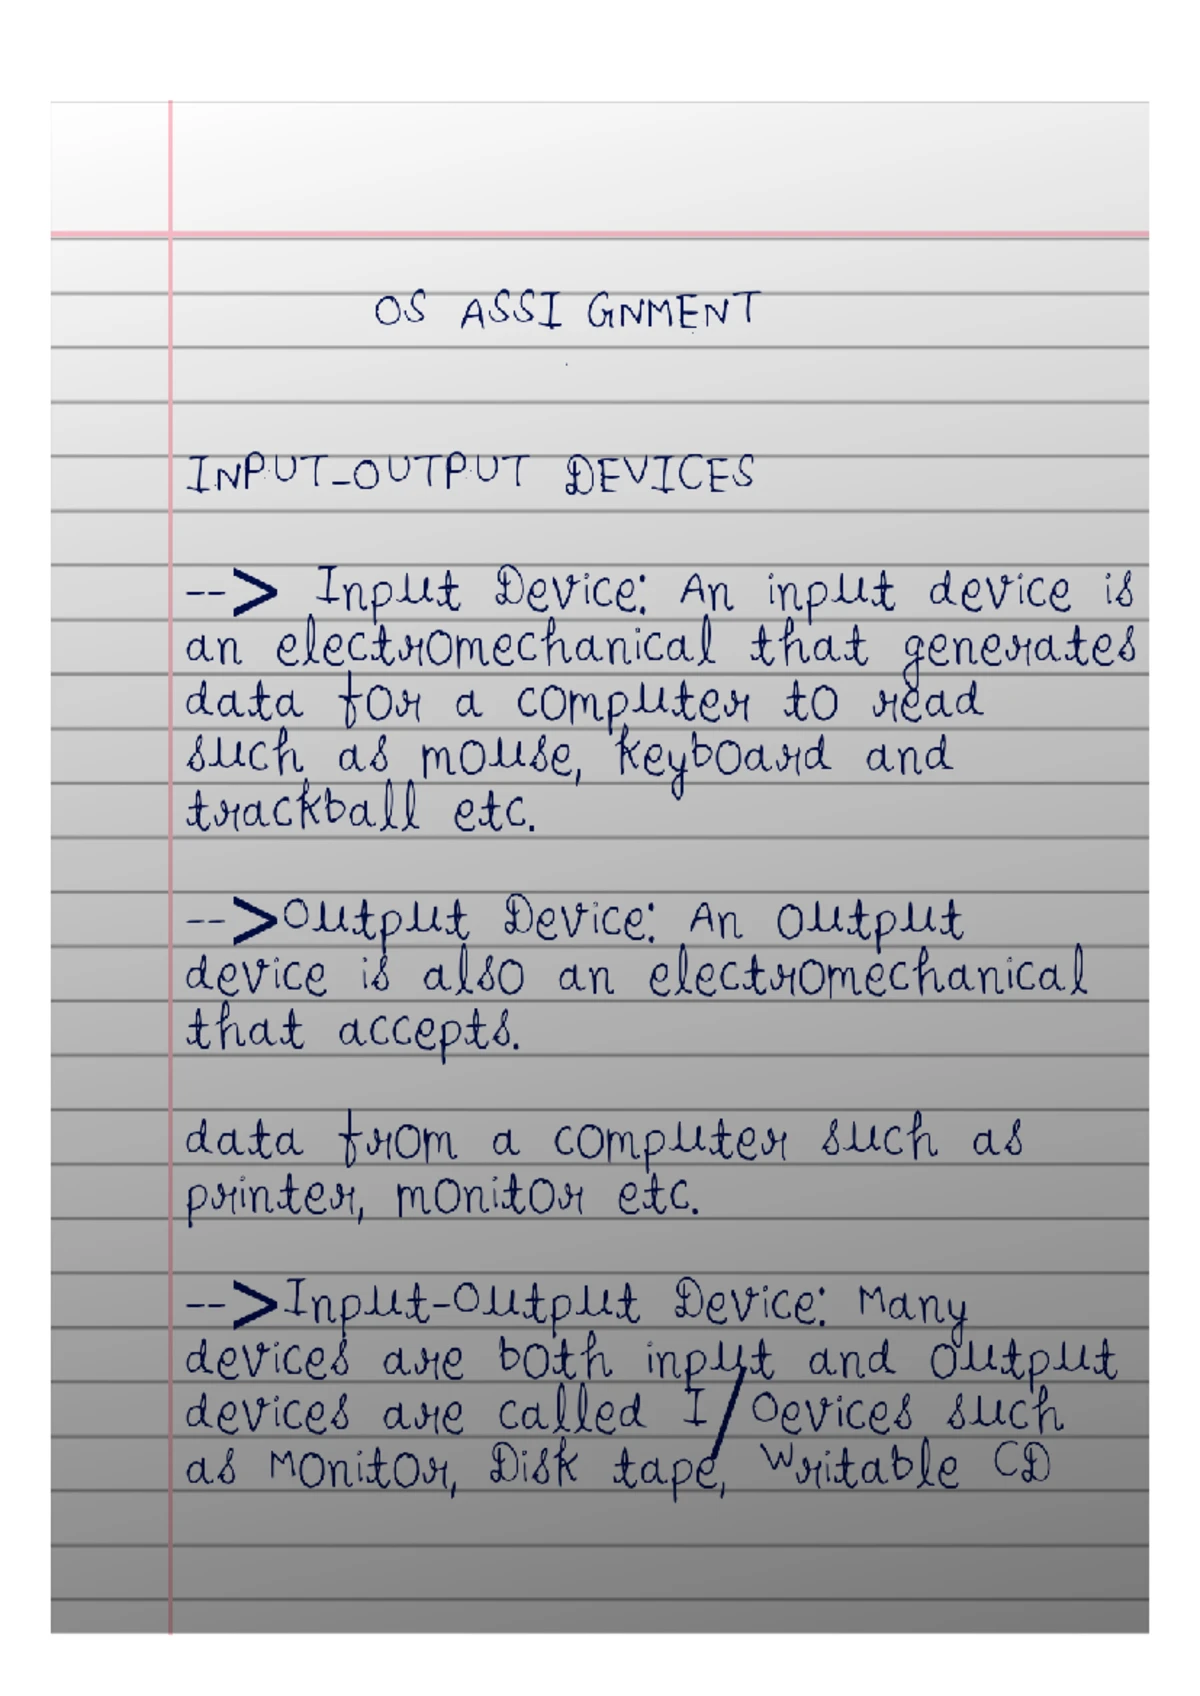 OS ASSI GNMENT
INPUT-OUTPUT DEVICES
--> Input Device: An input device is
an electromechanical that generates
data for a computer to read
such as mouse, keyboard and
trackball etc.
-->Output Device: An output
device is also an electromechanical
that accepts.
data from a computer such as
printer, monitor etc.
-->Input-Output Device: Many
devices are both input and output
devices are called I/Oevices such
as Monitor, Disk tape, Writable CD